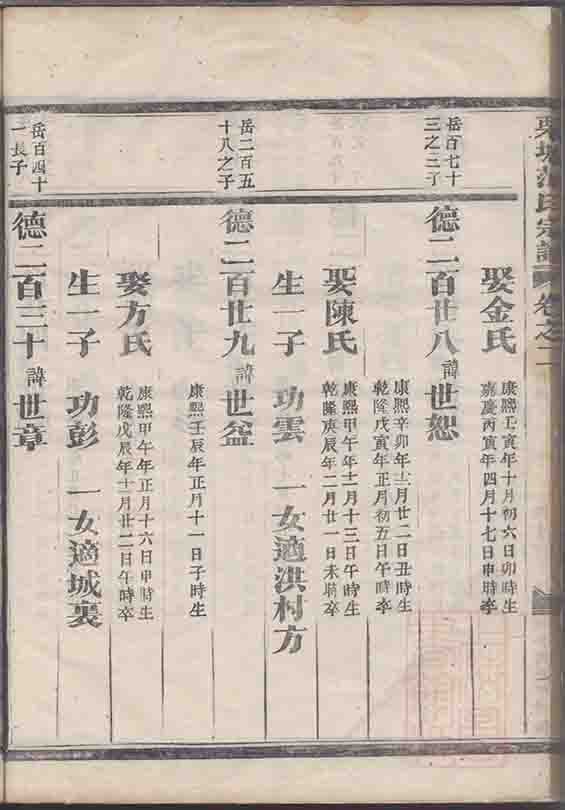 氏宗譜 卷之二
娶金氏
康熙壬寅年十月初六日卯時生
嘉慶丙寅年四月十七日申時卒
岳百七十
三之三子
德二百廿八 諱 世恕
康熙辛卯年十二月廿二日丑時生
乾隆戊寅年正月初五日午時卒
娶陳氏
康熙甲午年十二月十三日午時生
乾隆庚辰年二月廿一日未時卒
生一子 功雲 一女適洪村方
岳二百五
十八之子
德二百廿九 諱 世盆
康熙壬辰年正月十一日子時生
娶方氏
康熙甲午年正月十六日申時生
乾隆戊辰年十二月廿二日午時卒
生一子 功彭 一女適城裏
岳百四十
一長子
德二百三十 諱 世章